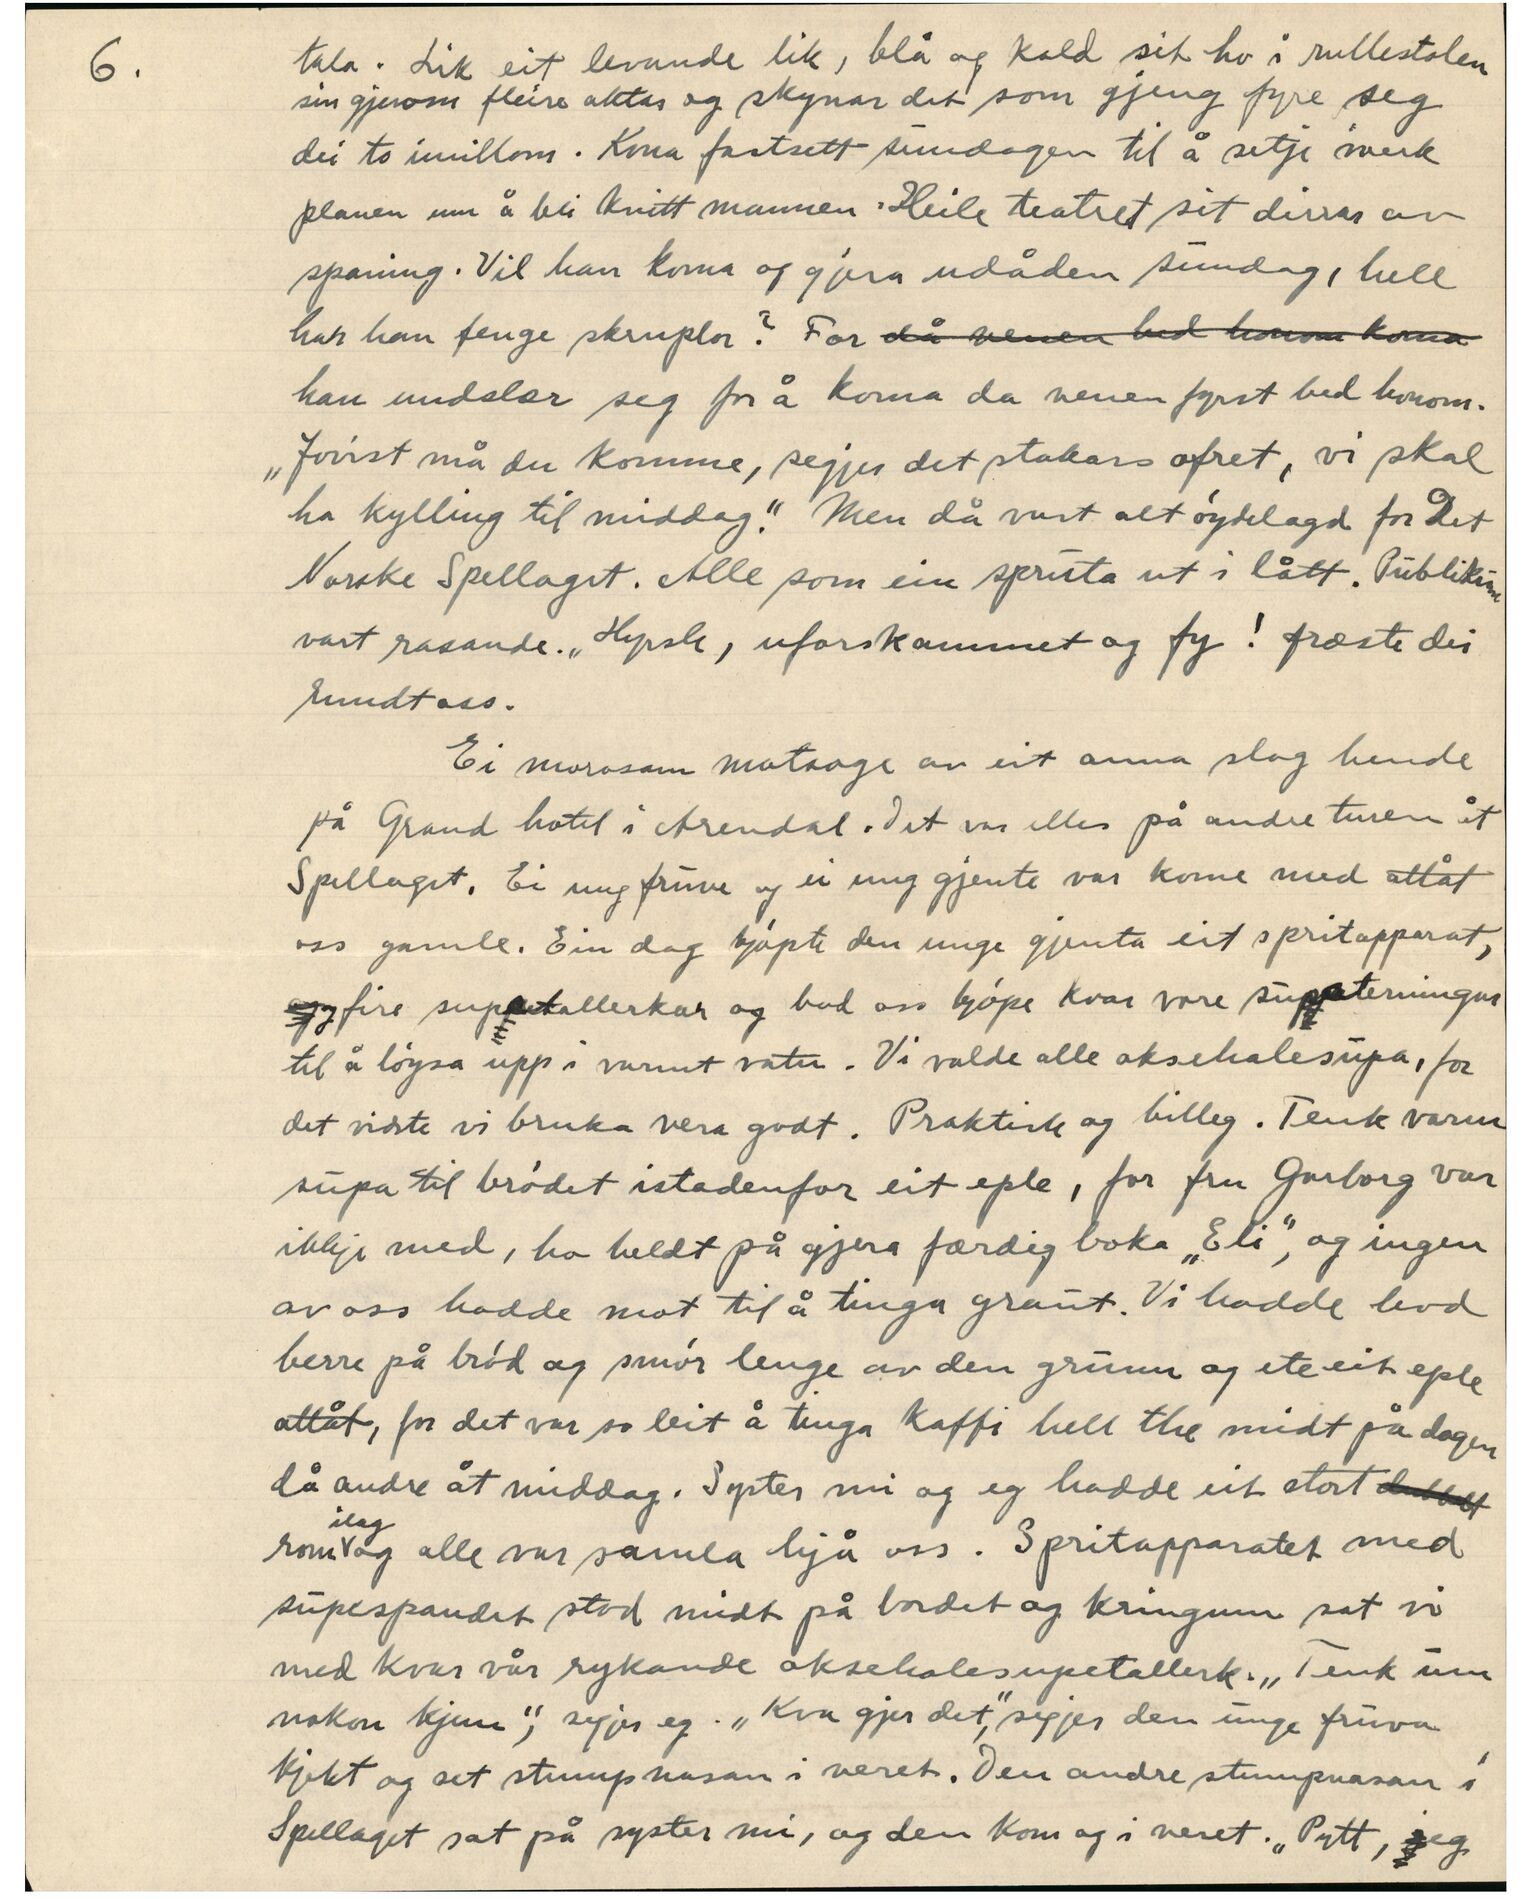 6.
tala. Lik eit levande lik, blå og kald sit ho i rullestolen
sin gjenom fleire aktar og skynar det som gjeng fyre seg
dei to imillom. Kona fastsett sundagen til å setje i verk
planen um å bli kvitt mannen. Heile teatret sit dirrar av
spaning. Vil han koma og gjera udåden sundag, hell
har han fenge skruplor? For då venen bed honom koma
han undslær seg for å koma da venen fyrst bed honom.
„Jovist må du komme, segjer det stakars ofret, vi skal
ha kylling til middag." Men då vart alt öydelagd for Det
Norske Spellaget. Alle som ein spruta ut i lått. Publikum
vart rasande. „Hysch, uforskammet og fy! fræste dei
rundt oss.
Ei morosam matsoge av eit anna slag hende
på Grand hotel i Arendal. Det var elles på andre turen åt
Spellaget. Ei ung fruve og ei ung gjente var kome med attåt
oss gamle. Ein dag kjöpte den unge gjenta eit spritapparat,
og fire suppetallerkar og bad oss kjöpe kvar vore suppeterningar
til å löysa upp i varmt vatn. Vi valde alle oksehalesupa, for
det visste vi bruka vera godt. Praktisk og billeg. Tenk varm
supa til brödet istadenfor eit eple, for fru Garborg var
ikkje med, ho heldt på gjera færdig boka „Eli", og ingen
av oss hadde mot til å tinga graut. Vi hadde levd
berre på bröd og smör lenge av den grunn og ete eit eple
attåt, for det var so leit å tinga kaffi hell the midt på dagen
då andre åt middag. Syster mi og eg hadde eit stort dubbelt
rom ilag og alle var samla hjå oss. Spritapparatet med
supespandet stod midt på bordet og kringum sat vi
med kvar vår rykande oksehalesupetallerk. „Tenk um
nokon kjem", segjer eg. „Kva gjer det," segjer den unge fruva
kjekt og set stumpnasan i veret. Den andre stumpnasan i
Spellaget sat på syster mi, og den kom og i veret. „Pytt, jeg